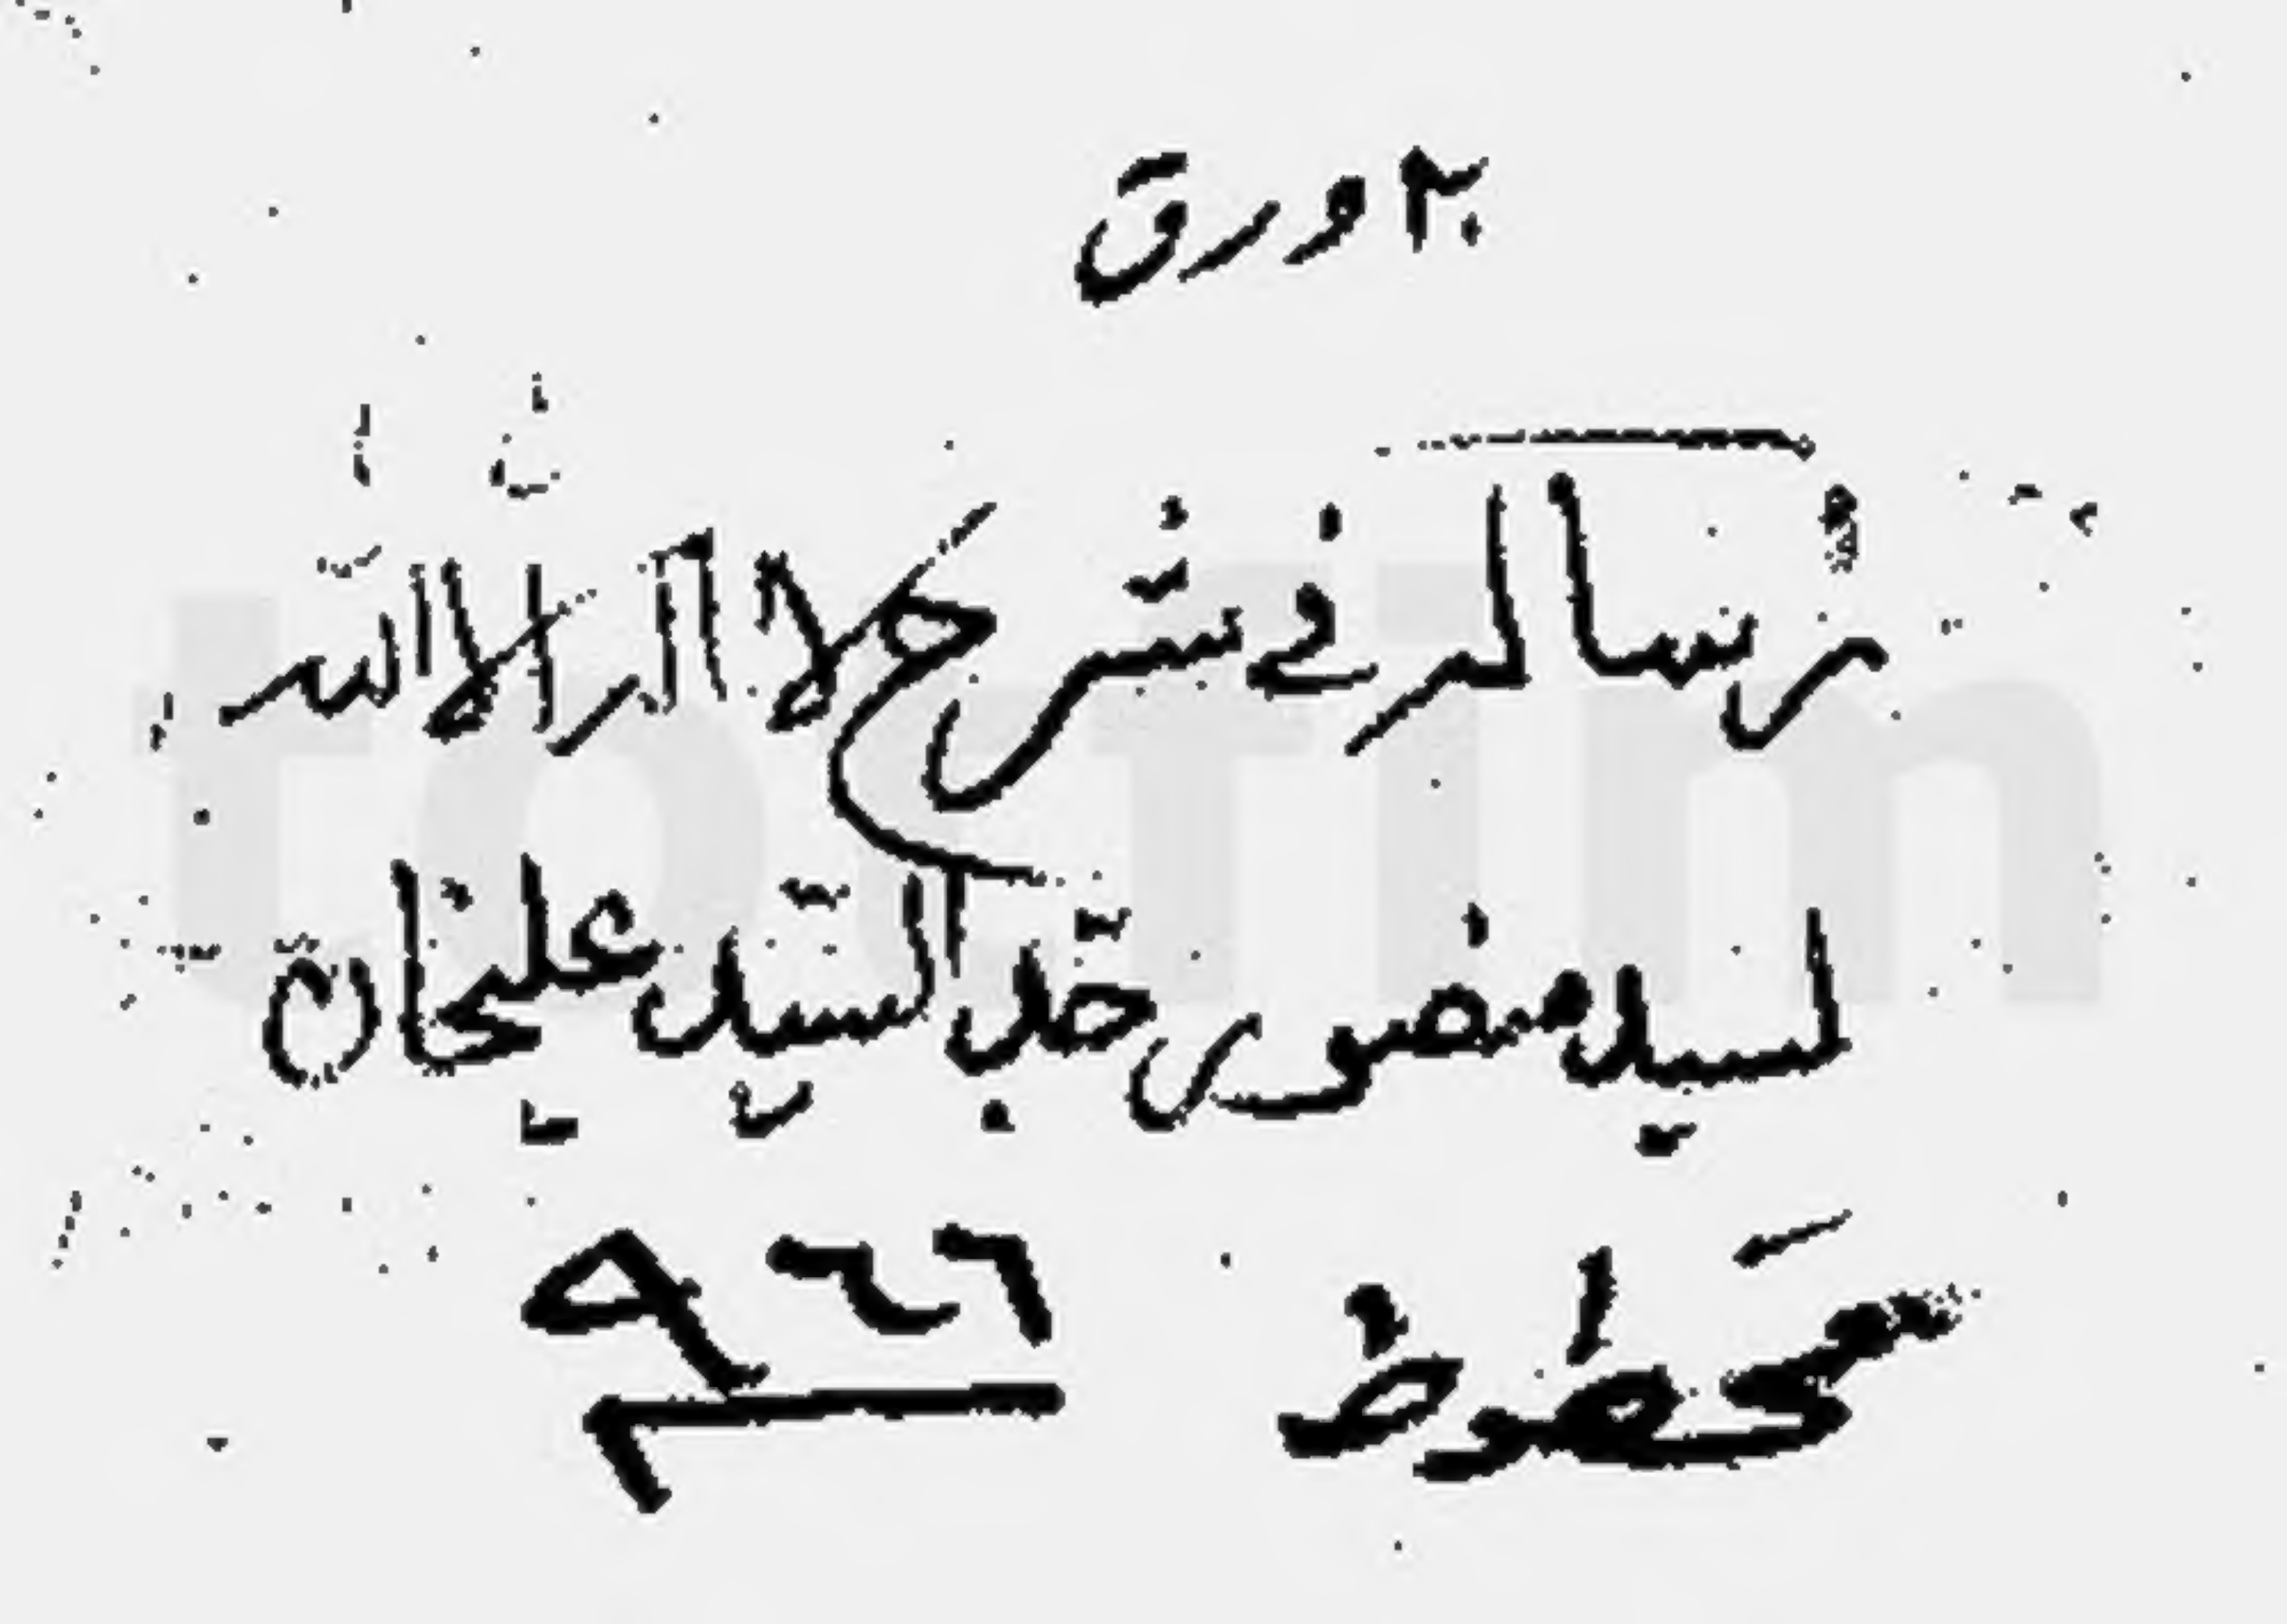 ٢٠ ورق
رسالة في شرح لا اله الا الله
لسيد منصور جدّ السيّد عليخان
مخطوط